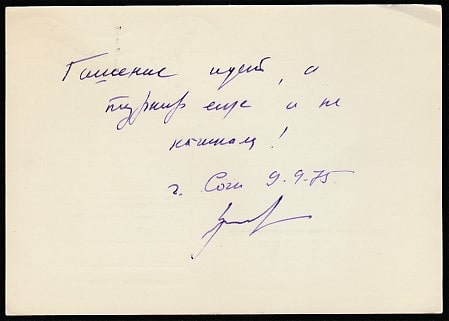 Гашение идет, а
турнир еще и не
начинал!
г. Сочи 9.9.75